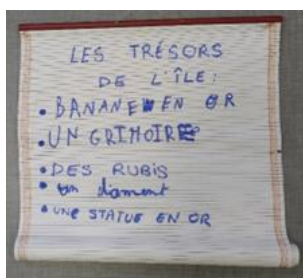 LES TRÉSORS
DE L'ÎLE:
• BANANE EN OR
• UN GRIMOIRE
• DES RUBIS
• un diament
• UNE STATUE EN OR